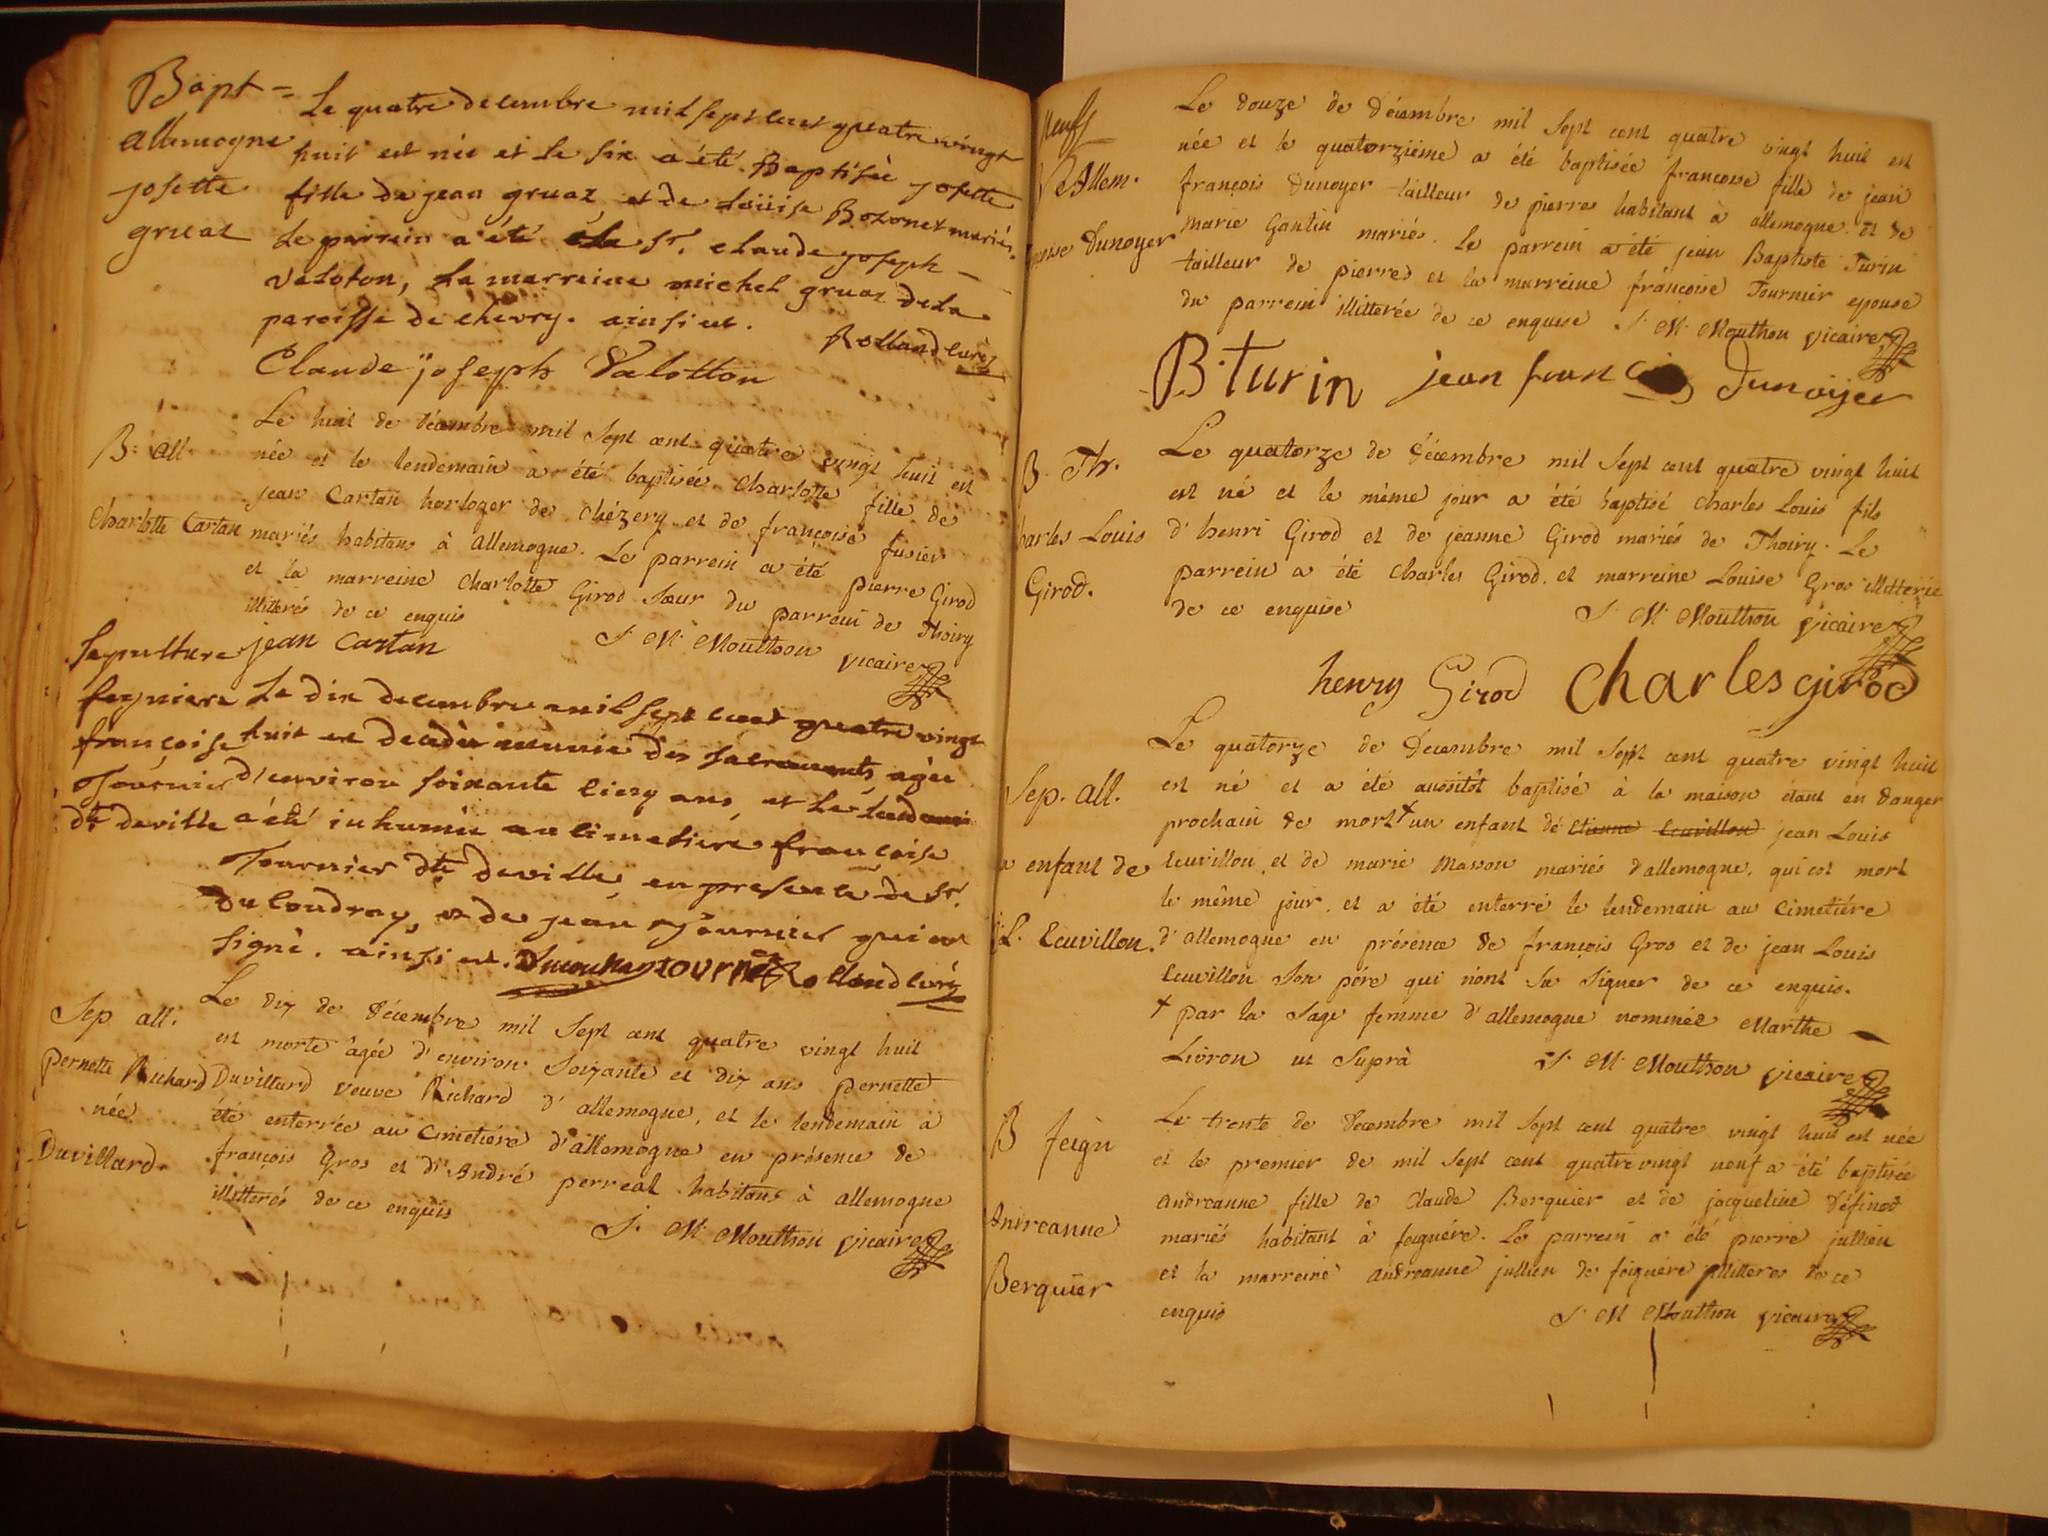 Bapt =
allemogne
josette
gruaz
Le quatre decembre mil sept cent quatre vingt
huit est née et le six a été Baptisée josette
fille de jean gruaz et de Loüise Bozonet mariés.
Le parrein a été le sr. claude joseph
Valoton, La marreine michel gruaz de la
paroisse de chevry. ainsi est.
Rolland curé
Claude joseph Valotton
B: all.
Charlotte Cartan
Le huit de décembre mil sept cent quatre vingt huit est
née et le lendemain a été baptisée Charlotte fille de
jean Cartan horloger de chézery et de françoise fusier
mariés habitans à allemogne. Le parrein a été pierre Girod
et la marreine Charlotte Girod Sœur du parrein de Thoiry
illitterés de ce enquis
J. M. Mouthon vicaire
jean Cartan
Sepulture
feyniere
françoise
Tournier
dte deville
Le dix decembre mil sept cent quatre vingt
huit est décédée munie des sacrements agée
d'environ soixante cinq ans, et le lendemain
a été inhumée au cimetiere françoise
Tournier dte deville en presence de sr.
Ducoudray, et de jean tournier qui ont
signé. ainsi est. Ducoudray tournier Rolland curé
Sep all.
pernette Richard
née
Duvillard.
Le dix de décembre mil sept cent quatre vingt huit
est morte âgée d'environ Soixante et dix ans pernette
Duvillard veuve Richard d'allemogne, et le lendemain a
été enterrée au cimetiére d'allemogne en présence de
françois Gros et d'André perreal habitans à allemogne
illitterés de ce enquis
J. M. Mouthon vicaire
B Allem.
Dunoyer
Le douze de décembre mil sept cent quatre vingt huit est
née et le quatorziéme a été baptisée françoise fille de jean
françois Dunoyer tailleur de pierres habitant à allemogne et de
marie Gantin mariés. Le parrein a été jean Baptiste Turin
tailleur de pierres et la marreine françoise Tournier epouse
du parrein illitterée de ce enquise J. M. Mouthon vicaire
B. turin jean francois Dunoijer
B. Th.
harles Louis
Girod.
Le quatorze de décembre mil sept cent quatre vingt huit
est né et le même jour a été baptisé Charles Louis fils
d'henri Girod et de jeanne Girod mariés de Thoiry. Le
parrein a été Charles Girod et marreine Louise Gros illitterée
de ce enquise
J. M. Mouthon vicaire
henry Girod Charles girod
Sep. all.
enfant de
L. Ecuvillon.
Le quatorze de Decembre mil sept cent quatre vingt huit
est né et a été aussitôt baptisé à la maison étant en danger
prochain de mort + un enfant de Etienne Ecuvillon jean Louis
Ecuvillon, et de marie Masson mariés d'allemogne, qui est mort
le même jour, et a été enterré le lendemain au cimetiére
d'allemogne en présence de françois Gros et de jean Louis
Ecuvillon son pére qui n'ont su signer de ce enquis.
+ par la Sage femme d'allemogne nommée Marthe
Livron ut Suprà J. M. Mouthon vicaire
B feign
Andreanne
Berquier
Le trente de decembre mil sept cent quatre vingt huit est née
et le premier de mil sept cent quatrevingt neuf a été baptisée
Andreanne fille de Claude Berquier et de jacqueline définod
mariés habitant à feignére. Le parrein a été pierre jullien
et la marreine andreanne jullien de feignére illitteres de ce
enquis J M Mouthon vicaire